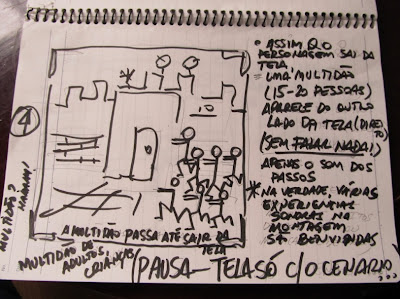 4
• ASSIM Q O
PERSONAGEM SAI DA
TELA,
UMA MULTIDÃO
(15-20 PESSOAS)
APARECE DO OUTRO
LADO DA TELA (DIREITO)
(SEM FALAR NADA!)
APENAS O SOM DOS
PASSOS
* NA VERDADE VÁRIAS
EXPERIENCIAS
SONORAS NA
MONTAGEM
SÃO BENVINDAS
A MULTIDÃO PASSA ATÉ SAIR DA
TELA
MULTIDÃO DE
ADULTOS,
CRIANÇAS
MULTIDÃO?
(PAUSA - TELA SÓ C/ O CENÁRIO...)